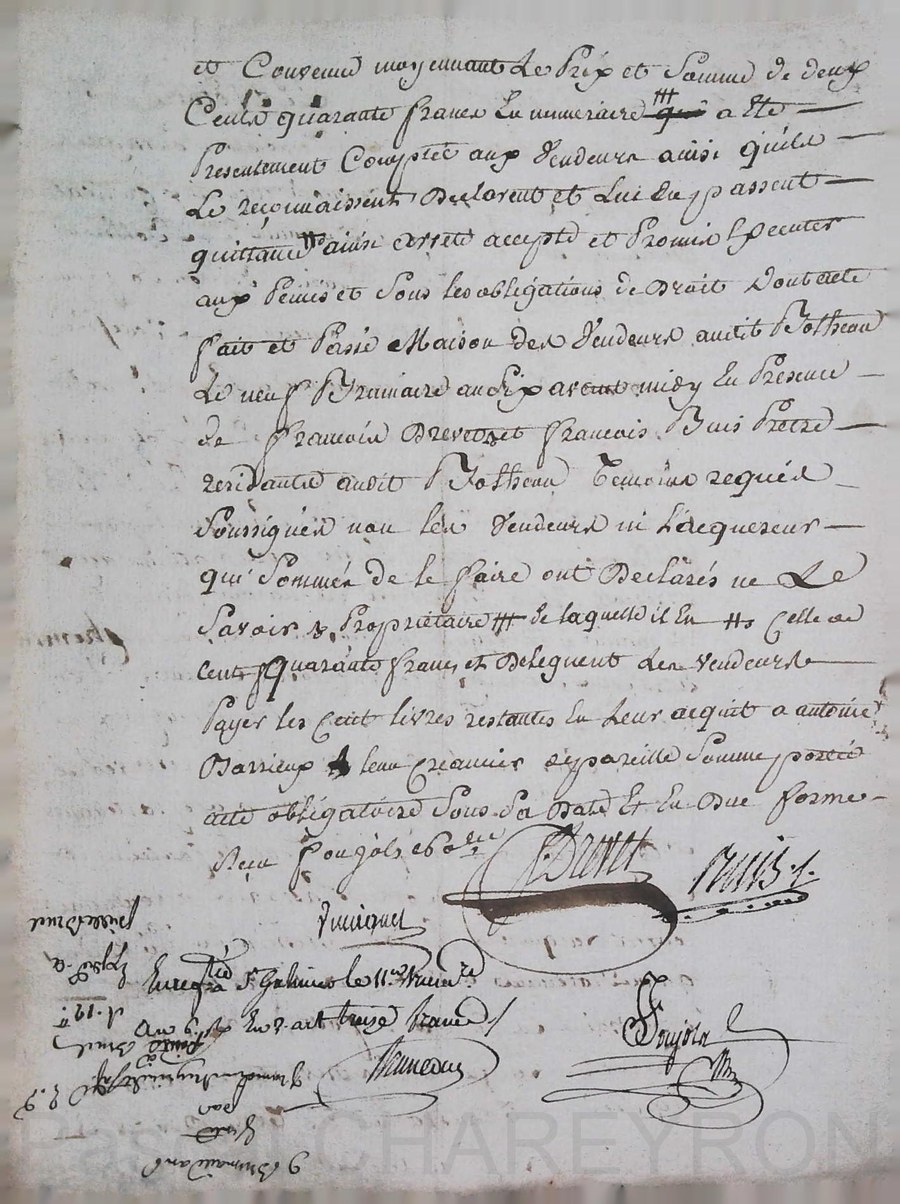 et Convenu moyennant Le Prix et Somme de deux
Cents quarante francs En numeraire # qui a Ete
Presentement Comptée aux Vendeurs ainsi quils
Le reconnaissent Declarent et Lui En passent
quittance # ainsi arreté accepté et Promis Executer
aux Peines et Sous les obligations de Droit Dont acte
fait et Passé Maison des Vendeurs audit Botheon
Le neuf Brumaire an Dix avant midy En Presence
de francois Drevet et francois Buis Pretre
residants audit Botheon Temoins requis
Soussignés non les Vendeurs ni L'acquereur
qui Sommés de le faire ont Declarés ne Le
Savoir & Propriétaire # de laquelle il En # Celle de
cent Quarante francs et Deleguent Les Vendeurs
Payer les Cent livres restantes En Leur acquit a antoine
Barrieux leur Creancier de pareille Somme portée
acte obligatoire Sous Sa Date Et En Due forme
Reçu foujols
Drevet
Buis p.
Enregtré a St Galmier le 11.
An Dix En 2. art treize francs
foujols
9 Brumaire an 10
Vente
par
CHAREYRON